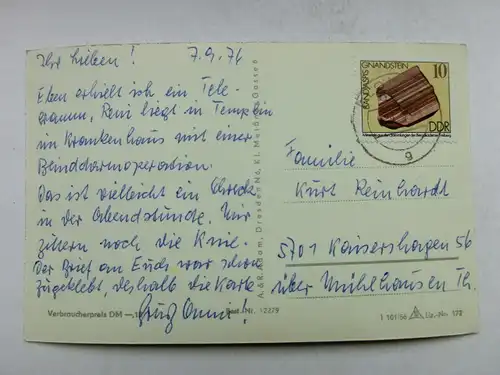 Ihr Lieben! 7.9.74
Eben erhielt ich ein Tele-
gramm, Reni liegt in Templin
im Krankenhaus mit einer
Blinddarmoperation.
Das ist vielleicht ein Schreck
in der Abendstunde. Mir
zittern noch die Knie.
Der Brief an Euch war schon
zugeklebt, deshalb die Karte
Gruß Omi!
Verbraucherpreis DM —,
Best.-Nr. 12279
A. & R. Adam, Dresden N 6, Kl. Meißner Gasse
BANDJASPIS
GNANDSTEIN
10
DDR
g
Familie
Kurt Reinhardt
5701 Kaisershagen 56
über Mühlhausen Th.
1 161/56 Liz.-Nr. 172